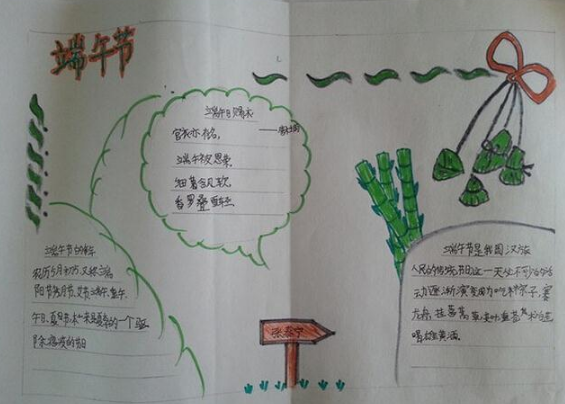 端午节
端午日赐衣
——杜甫
宫衣亦有名,
端午被恩荣
细葛含风软
香罗叠雪轻
端午节的
农历5月初五,又称端
阳节
午日、夏节,本来是夏季的一个驱
除瘟疫的节日
张嘉宁
端午节是我国汉族
人民的传统节日这一天必不可少的活
动逐渐演变为吃粽子,赛
龙舟,挂菖蒲
喝雄黄酒。